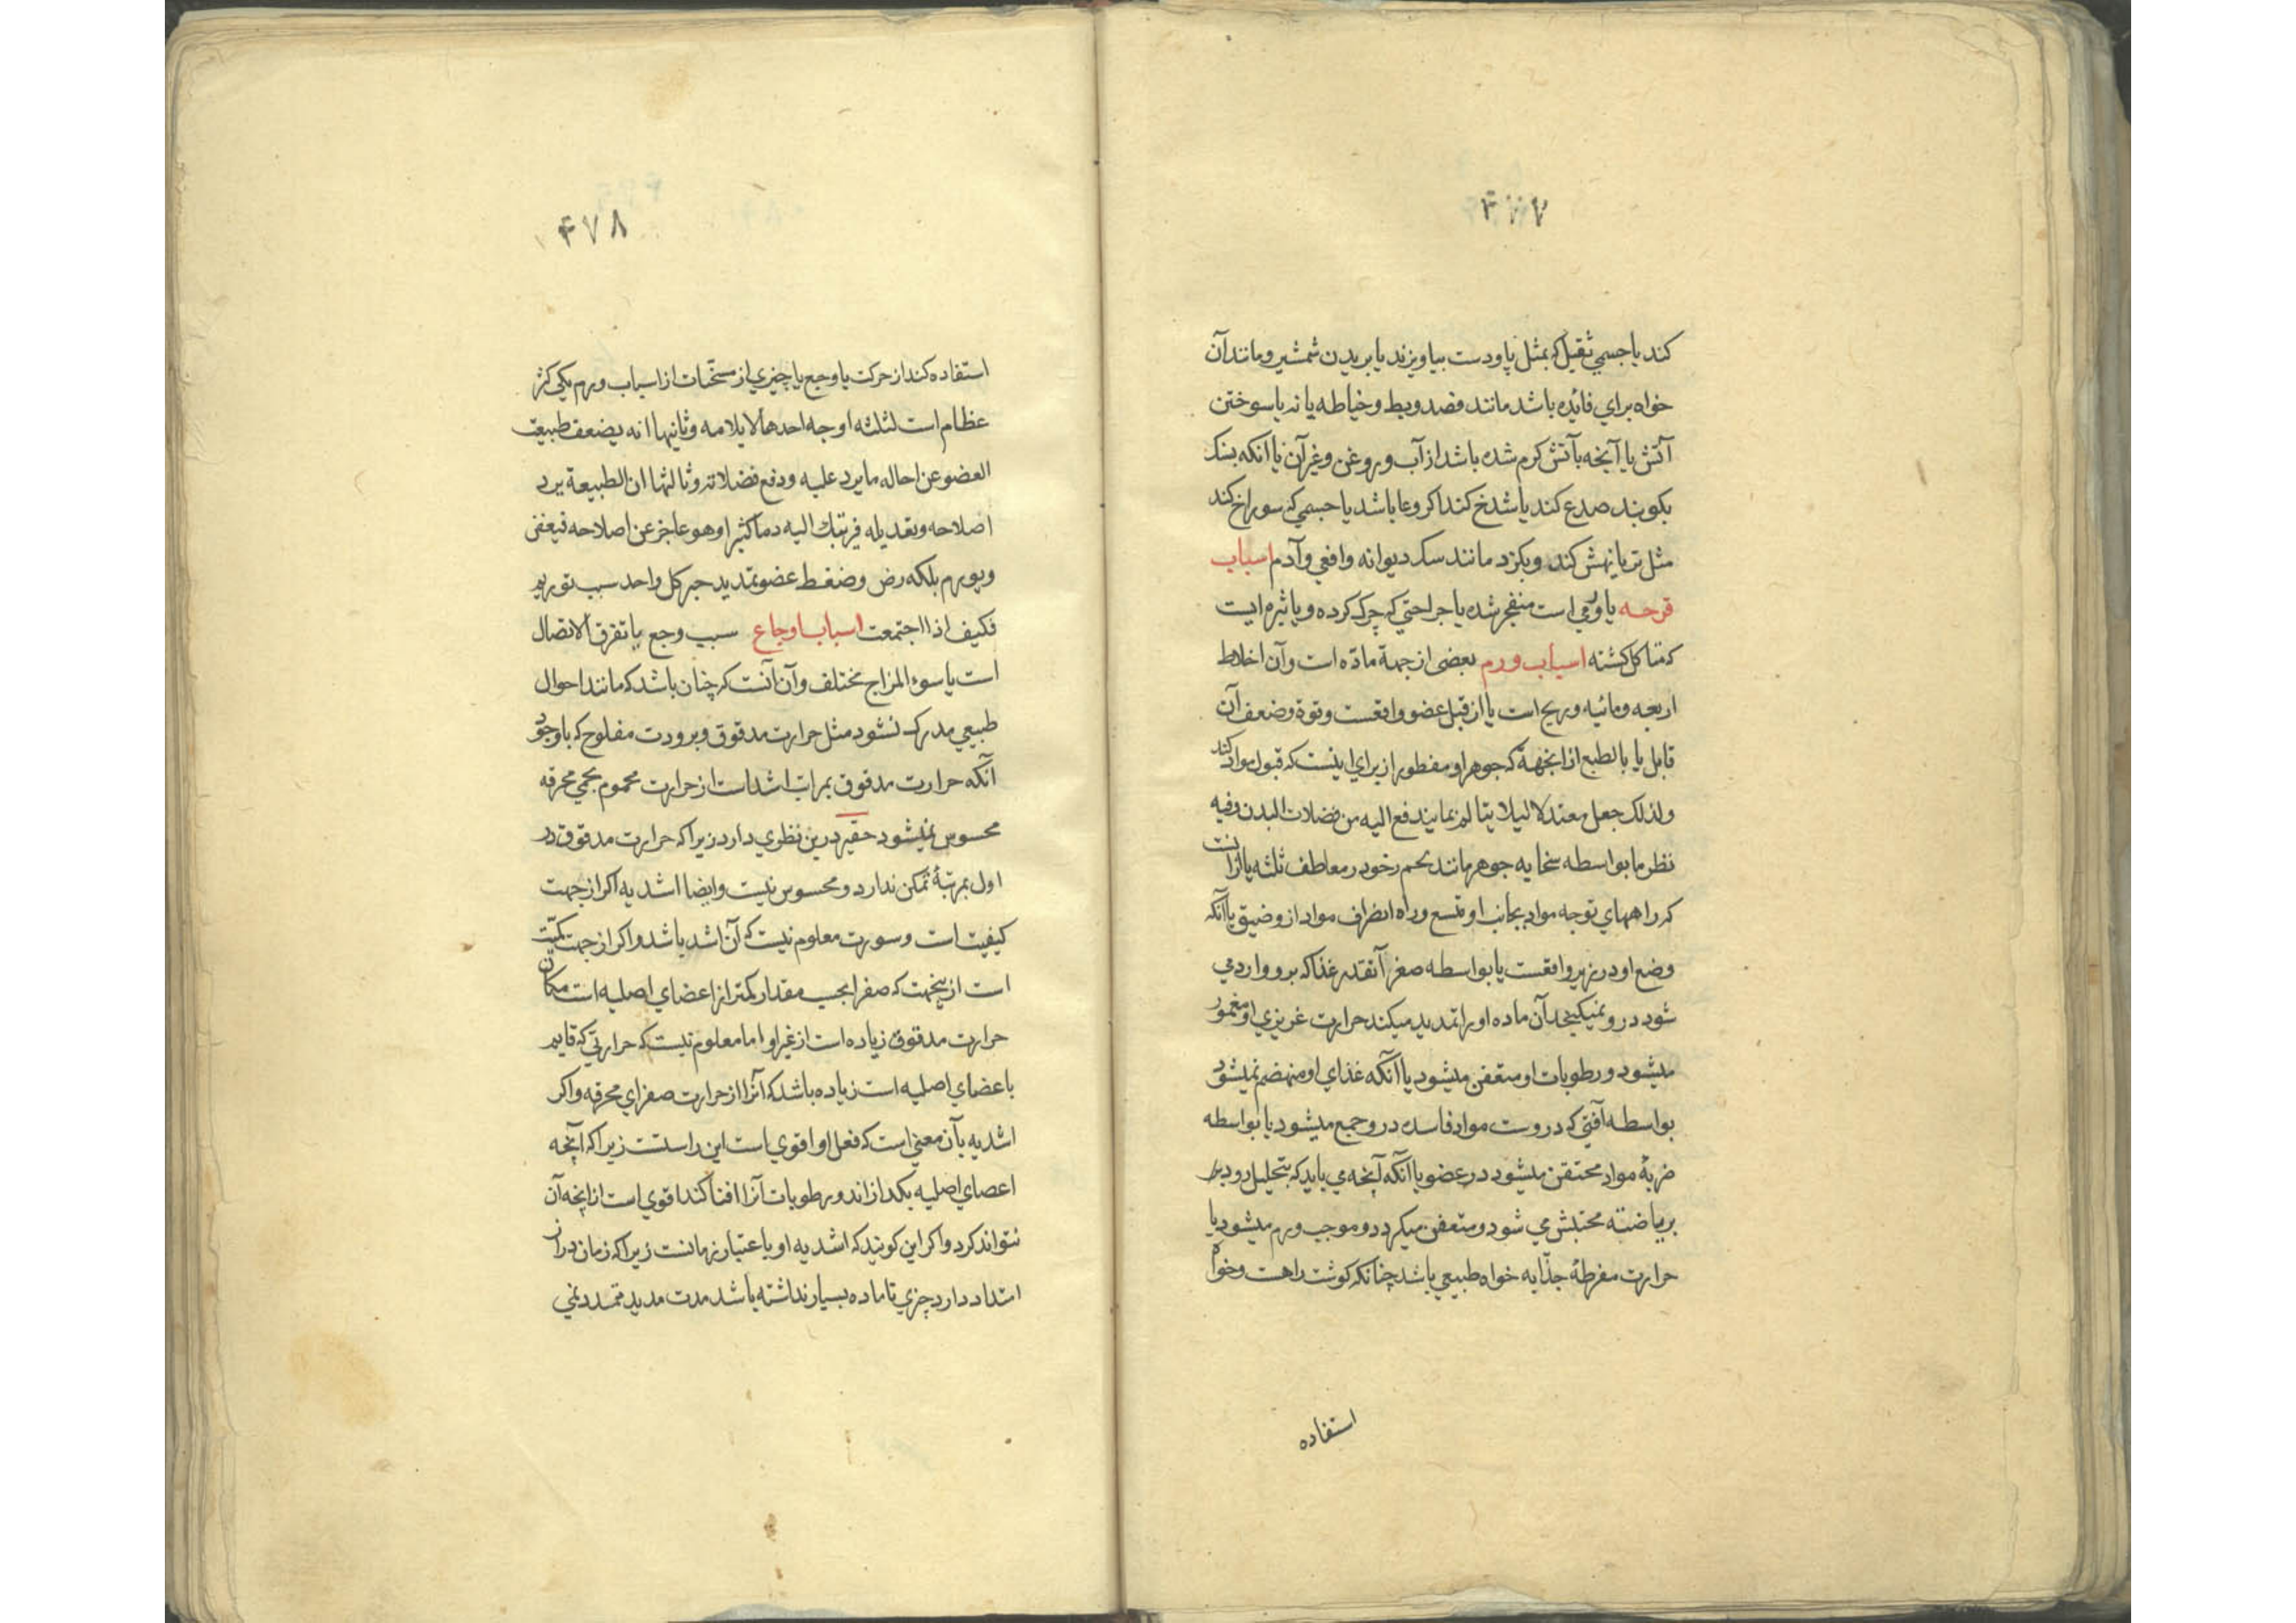 ۴۷۷
کند یا جسمي ثقیل که بمثل پا و دست بیاویزند یا بریدن شمشیر و مانند آن
خواه براي فائده باشد مانند فصد و بط و خیاطه یا نه یا سوختن
آتش یا آنچه بآتش کرم شده باشد از آب و روغن و غیر آن یا آنکه بسنک
بکوبند صدع کند یا شدخ کند اکر وعا باشد یا جسمي که سوراخ کند
مثل تیر یا نهش کند و بکزد مانند سک دیوانه و افعي و آدم اسباب
قرحه یا ورمي است منفجر شده یا جراحتي که چرک کرده و یا بثره ایست
که متاکل کشته اسباب ورم بعضی از جهة ماده است و آن اخلاط
اربعه و مائیه و ریح است یا از قبل عضو واقعست و قوة و ضعف آن
قابل یا بالطبع از انجهة که جوهر او مفطور از براي اینست که قبول مواد کند
ولذلک جعل معتدلا لیلا یتالم بما یندفع الیه من فضلات البدن وفیه
نظر ما بواسطه سخایه جوهر مانند لحم رخو در معاطف ثلثه یا ازانست
که راههاي توجه مواد بجانب او متسع و راه انصراف مواد از و ضیق یا آنکه
وضع او در زیر واقعست یا بواسطه صغر آنقدر غذا که برو وارد مي
شود در و نمیکنجد آن ماده او را تمدید میکند حرارت غریزي او مغمور
میشود و رطوبات او متعفن میشود یا آنکه غذاي او منهضم نمیشود
بواسطه آفتي که دروست مواد فاسد در و جمع میشود یا بواسطه
ضربهٔ مواد محتقن میشود در عضو یا آنکه آنچه مي باید که بتحلیل رود
بریاضته محتبس مي شود و متعفن میکردد و موجب ورم میشود یا
حرارت مفرطهٔ جذابه خواه طبیعي باشد چنانکه کوشت راهست و خواه
استفاده
۴۷۸
استفاده کند از حرکت یا وجع یا چیزي از مسخنات از اسباب ورم یکي کسر
عظام است لثلثه اوجه احدها لایلامه وثانیها انه یضعف طبیعت
العضو عن احاله ما یرد علیه ودفع فضلاته وثالثها ان الطبیعة یرد
اصلاحه وتعدیله فیرتبک الیه دما کثیرا وهو عاجز عن اصلاحه فیعفن
ویورم بلکه رض وضغط عضو تمدید جبر کل واحد سبب تورم
فکیف اذا اجتمعت اسباب اوجاع سبب وجع یا تفرق الاتصال
است یا سوء المزاج مختلف و آن آنست که چنان باشد که مانند احوال
طبیعي مدرک نشود مثل حرارت مدقوق و برودت مفلوح که باوجود
آنکه حرارت مدقوق بمراتب اشد است از حرارت محموم بحمي محرقه
محسوس نمیشود حقیر درین نظري دارد زیرا که حرارت مدقوق در
اول بمرتبهٔ تمکن ندارد و محسوس نیست و ایضا اشدیه اکر از جهت
کیفیت است و سورت معلوم نیست که آن اشد باشد و اکر از جهت کمیت
است از ینجهت که صفرا بحسب مقدار کمتر از اعضاي اصلیه است مکان
حرارت مدقوق زیاده است از غیر او اما معلوم نیست که حرارتي که قایم
باعضاي اصلیه است زیاده باشد که انرا از حرارت صفراي محرقه و اکر
اشدیه بآن معني است که فعل او اقوي است این راستست زیرا که آنچه
اعضاي اصلیه بکدازاند و رطوبات آنرا افنا کند اقوي است از انچه آن
نتواند کرد و اکر این کویند که اشدیه او باعتبار زمانست زیرا که زمان دراز
امتداد دارد چیزي تا ماده بسیار نداشته باشد مدت مدید متمدد نمي